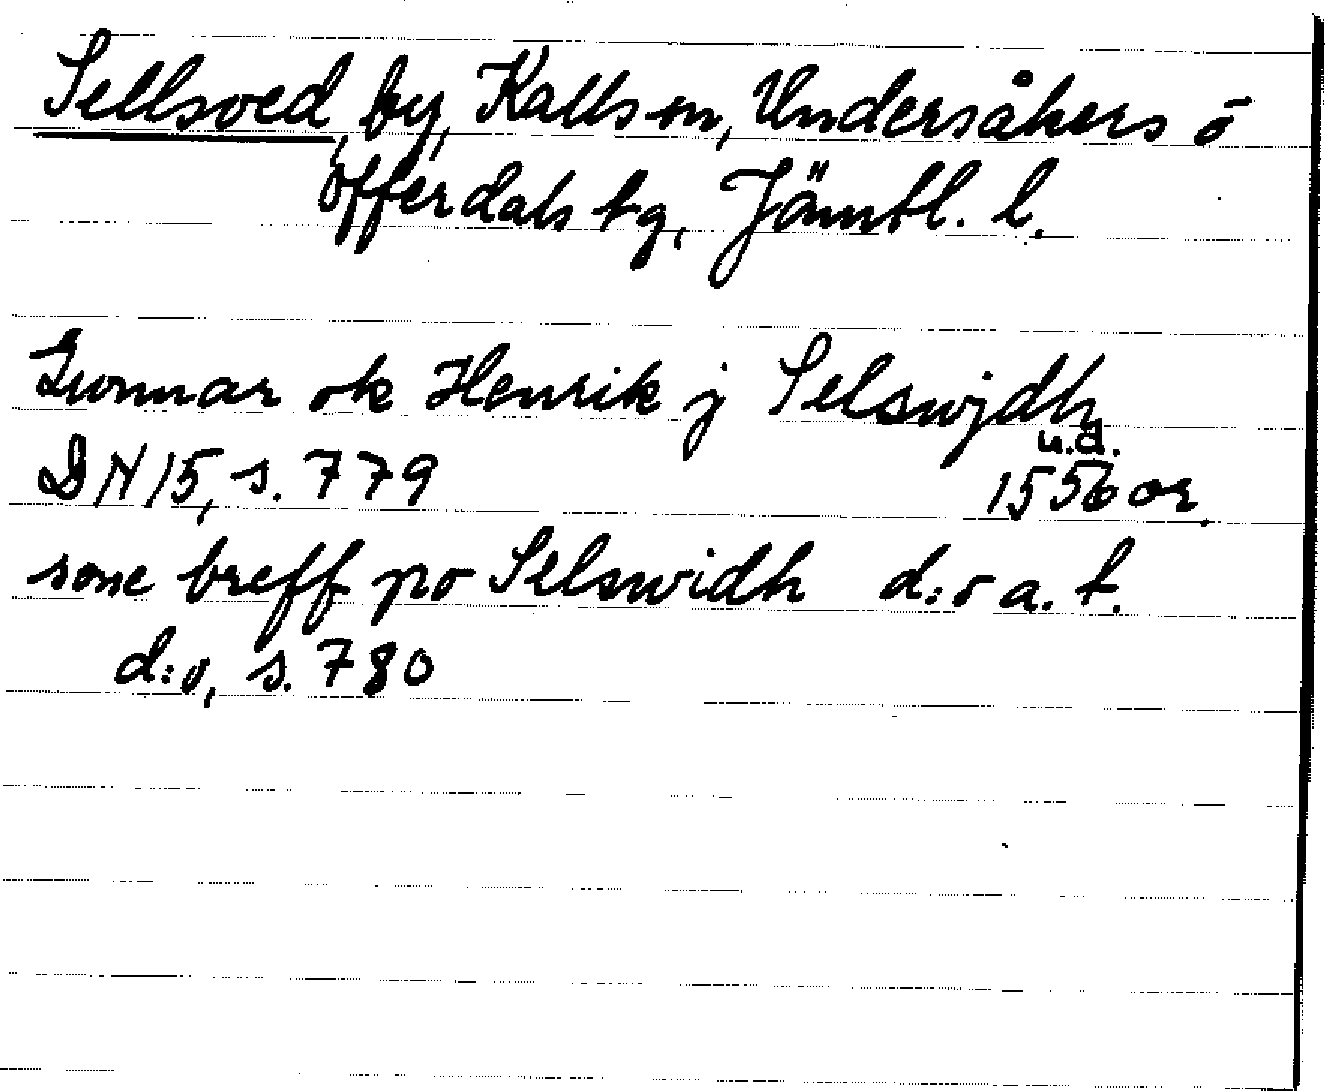 Sellsved, by, Kalls sn, Undersåkers o
Offerdals tg, Jämtl. l.
Gunnar ok Henrik j Selswjdh
u.d.
DN 15, s. 779 1556 or.
sone breff po Selswidh d:o a. t.
d:o, s. 780